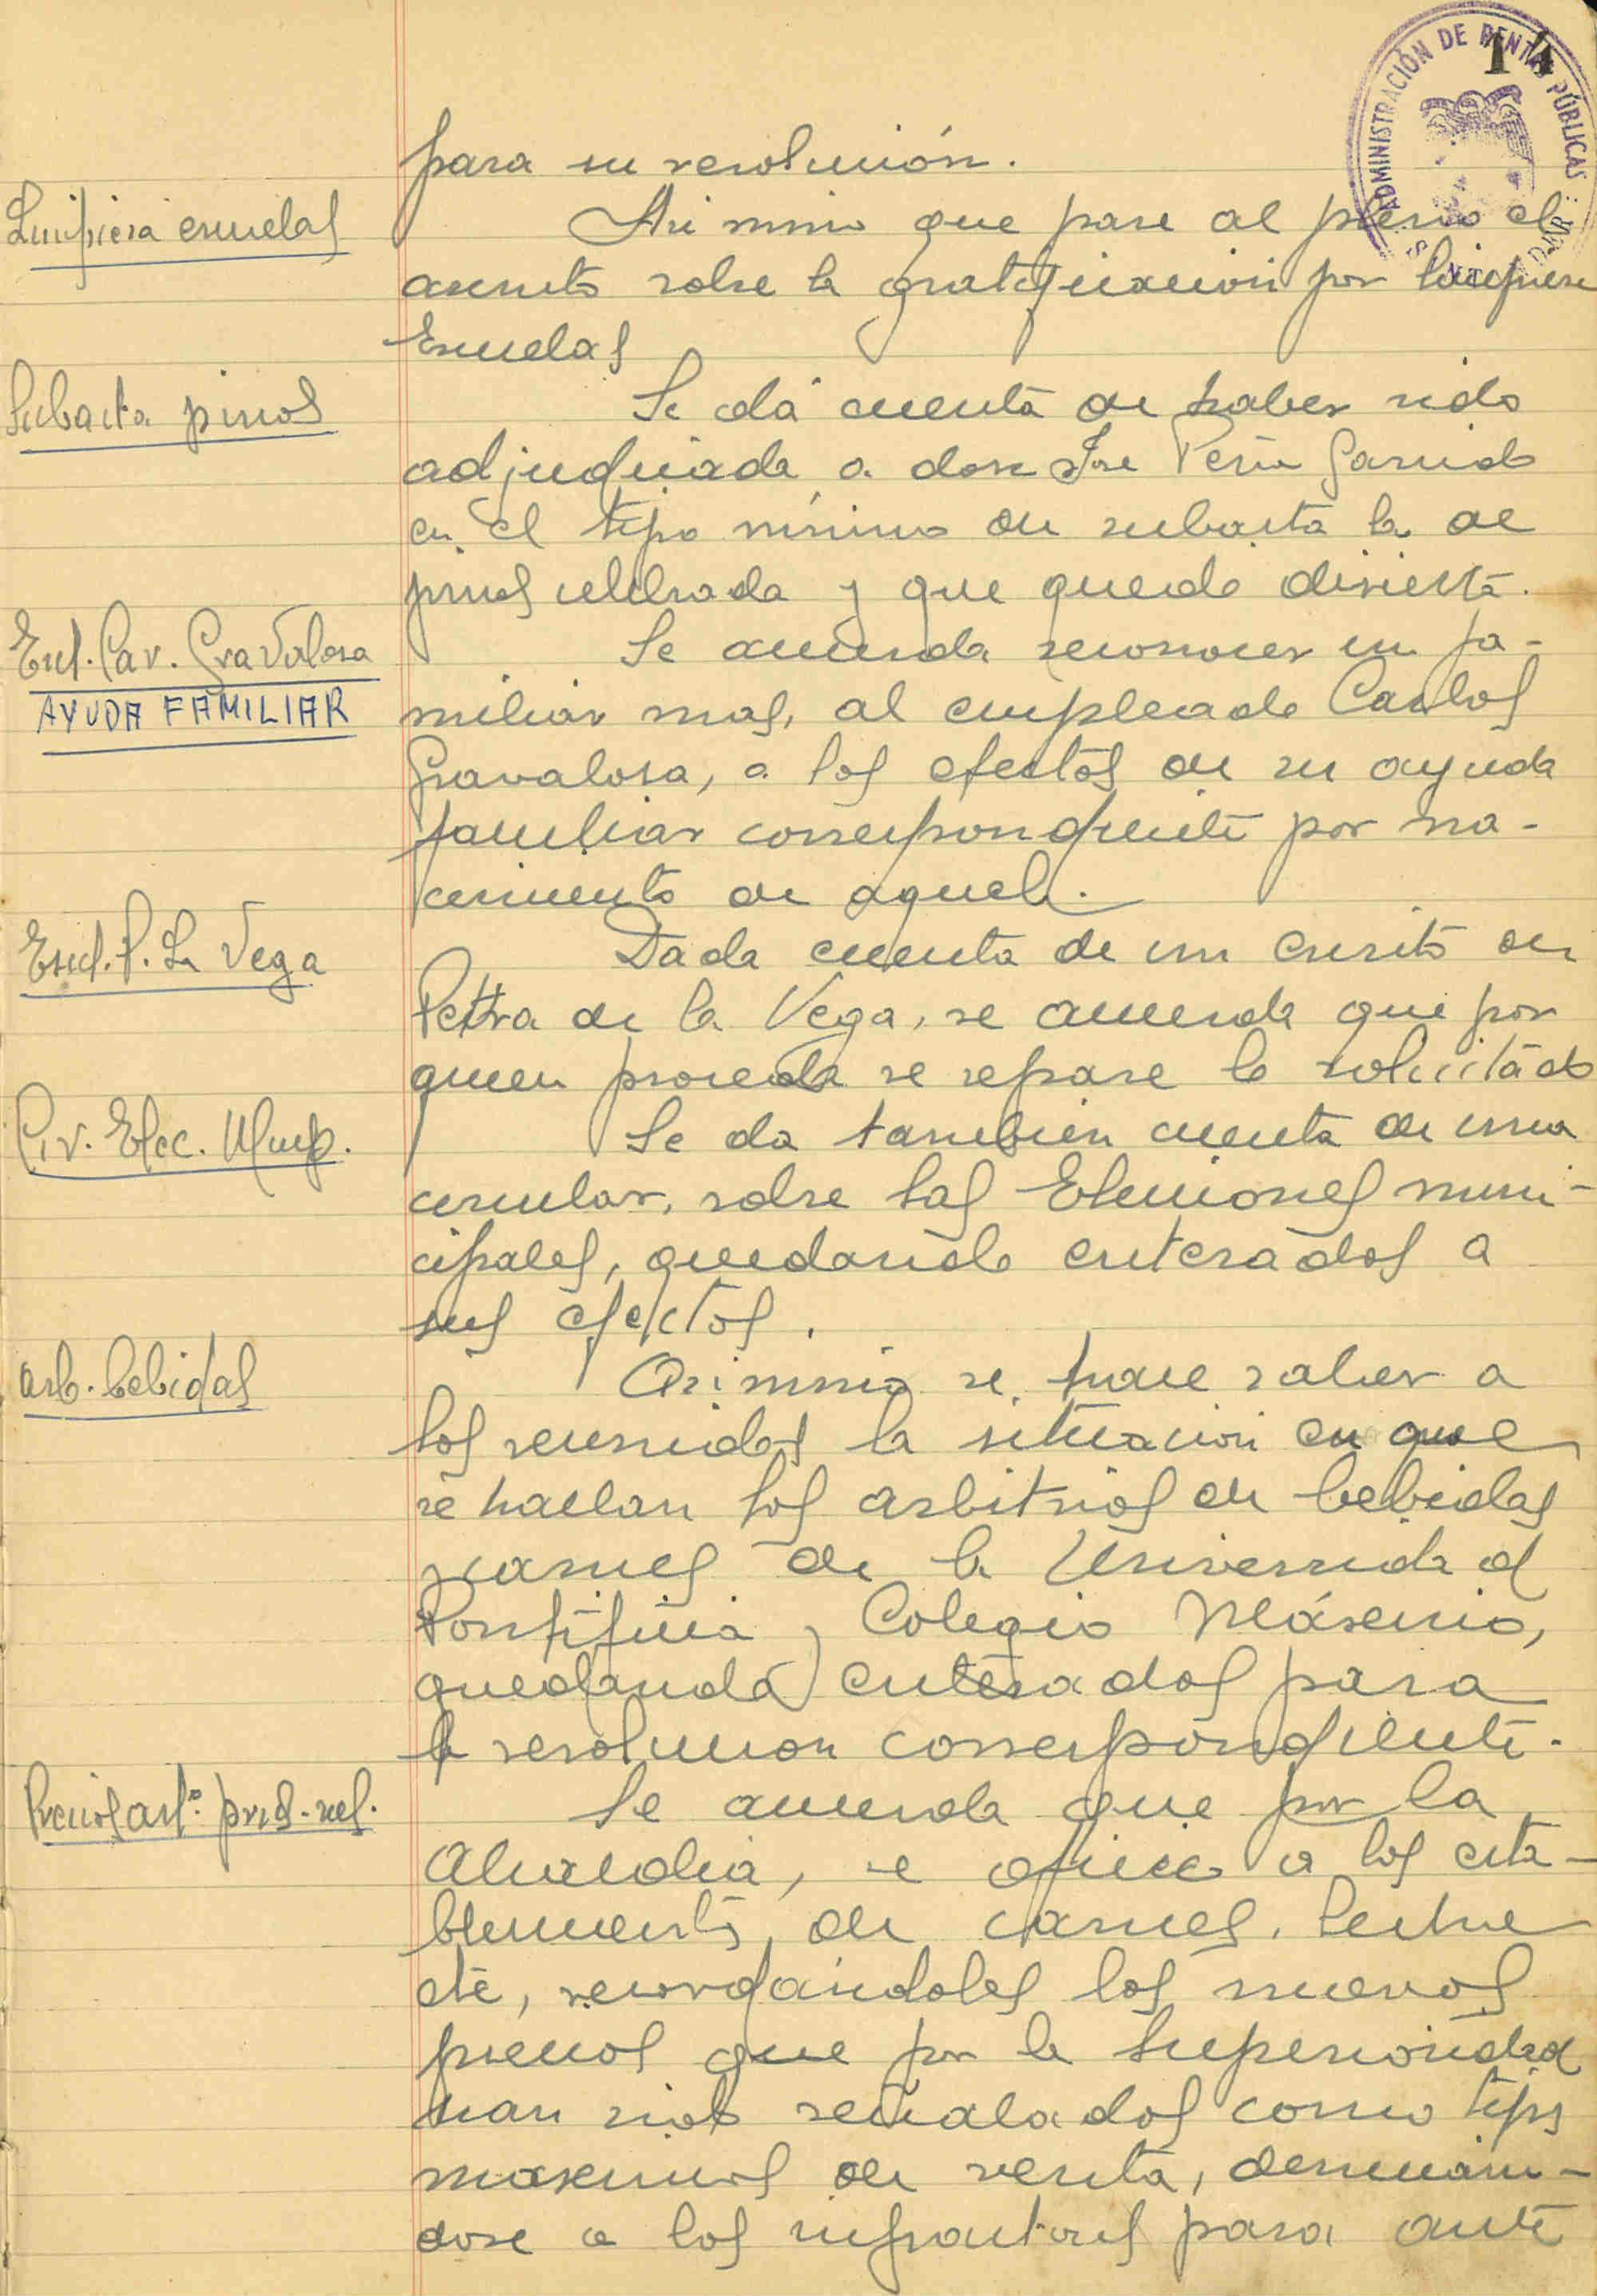 14
ADMINISTRACIÓN DE RENTAS PÚBLICAS
para su resolución.
Limpieza escuelas
Asi mismo que pase al pleno el
asunto sobre la gratificación por limpieza
Escuelas
Subasta pinos
Se dá cuenta de haber sido
adjudicada a don José Peña Garrido
en el tipo mínimo de subasta la de
pinos celebrada y que quedo disierta.
Escl. Car. Gravalosa
AYUDA FAMILIAR
Se acuerda reconocer un fa-
miliar mas, al empleado Carlos
Gravalosa, a los efectos de su ayuda
familiar correspondiente por na-
cimiento de aquel.
Escd. P. La Vega
Dada cuenta de un escrito de
Petra de la Vega, se acuerda que por
quien proceda se repare lo solicitado
Cir. Elcc. Munp.
Se da tambien cuenta de una
circular, sobre las Elecciones muni-
cipales, quedando enterados a
sus efectos.
Arb. bebidas
Asimismo se hace saber a
los reunidos la situacion en que
se hallan los arbitrios de bebidas
y carnes de la Universidad
Pontificia y Colegio Máximo,
quedando enterados para
la resolucion correspondiente.
Precios artº. prds. nes.
Se acuerda que por la
Alcaldia, se oficie a los esta-
blecimients, de carnes, leche
etc, recordándoles los nuevos
precios que por la Superioridad
han sido señalados como tips
maximos de venta, denuncian-
dose a los infractores para ante